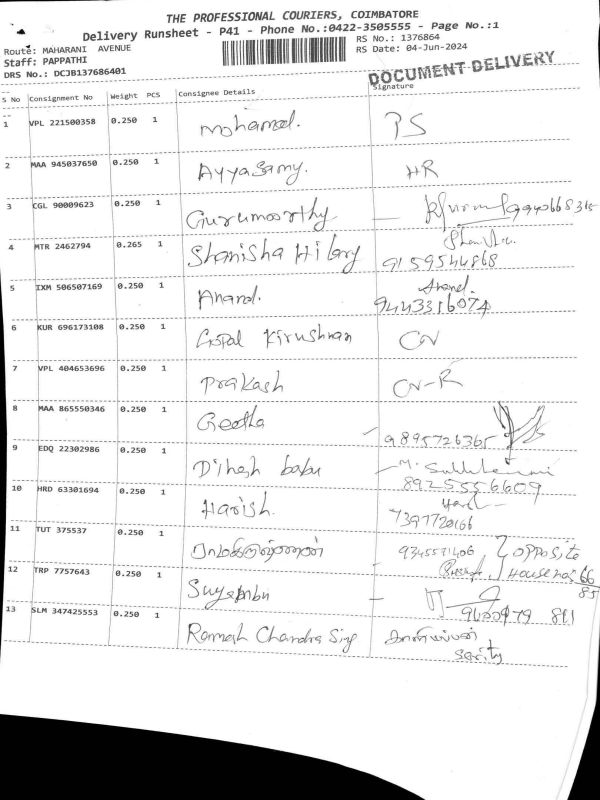 THE PROFESSIONAL COURIERS, COIMBATORE
Delivery Runsheet - P41 - Phone No.:0422-3505555 - Page No.:1
Route: MAHARANI AVENUE
RS No.: 1376864
Staff: PAPPATHI
RS Date: 04-Jun-2024
DRS No.: DCJB137686401
DOCUMENT DELIVERY
S No Consignment No Weight PCS Consignee Details Signature
1 VPL 221500358 0.250 1 Mohamed. PS
2 MAA 945037650 0.250 1 Ayyasamy. HR
3 CGL 90009623 0.250 1 Gurumoorthy
4 MTR 2462794 0.265 1 Shanisha Hilary 9159544868
5 IXM 506507169 0.250 1 Anand. Anand.
9443316074
6 KUR 696173108 0.250 1 Gopal Kirushnan
7 VPL 404653696 0.250 1 Prakash
8 MAA 865550346 0.250 1 Geetha 9895726365
9 EDQ 22302986 0.250 1 Dinesh babu
8925556609
10 HRD 63301694 0.250 1 Harish.
7397720166
11 TUT 375537 0.250 1 ராமகிருஷ்ணன் 9345591406 opposite
House no 66
85
12 TRP 7757643 0.250 1 Suyambu
13 SLM 347425553 0.250 1 Ramesh Chandra Sing